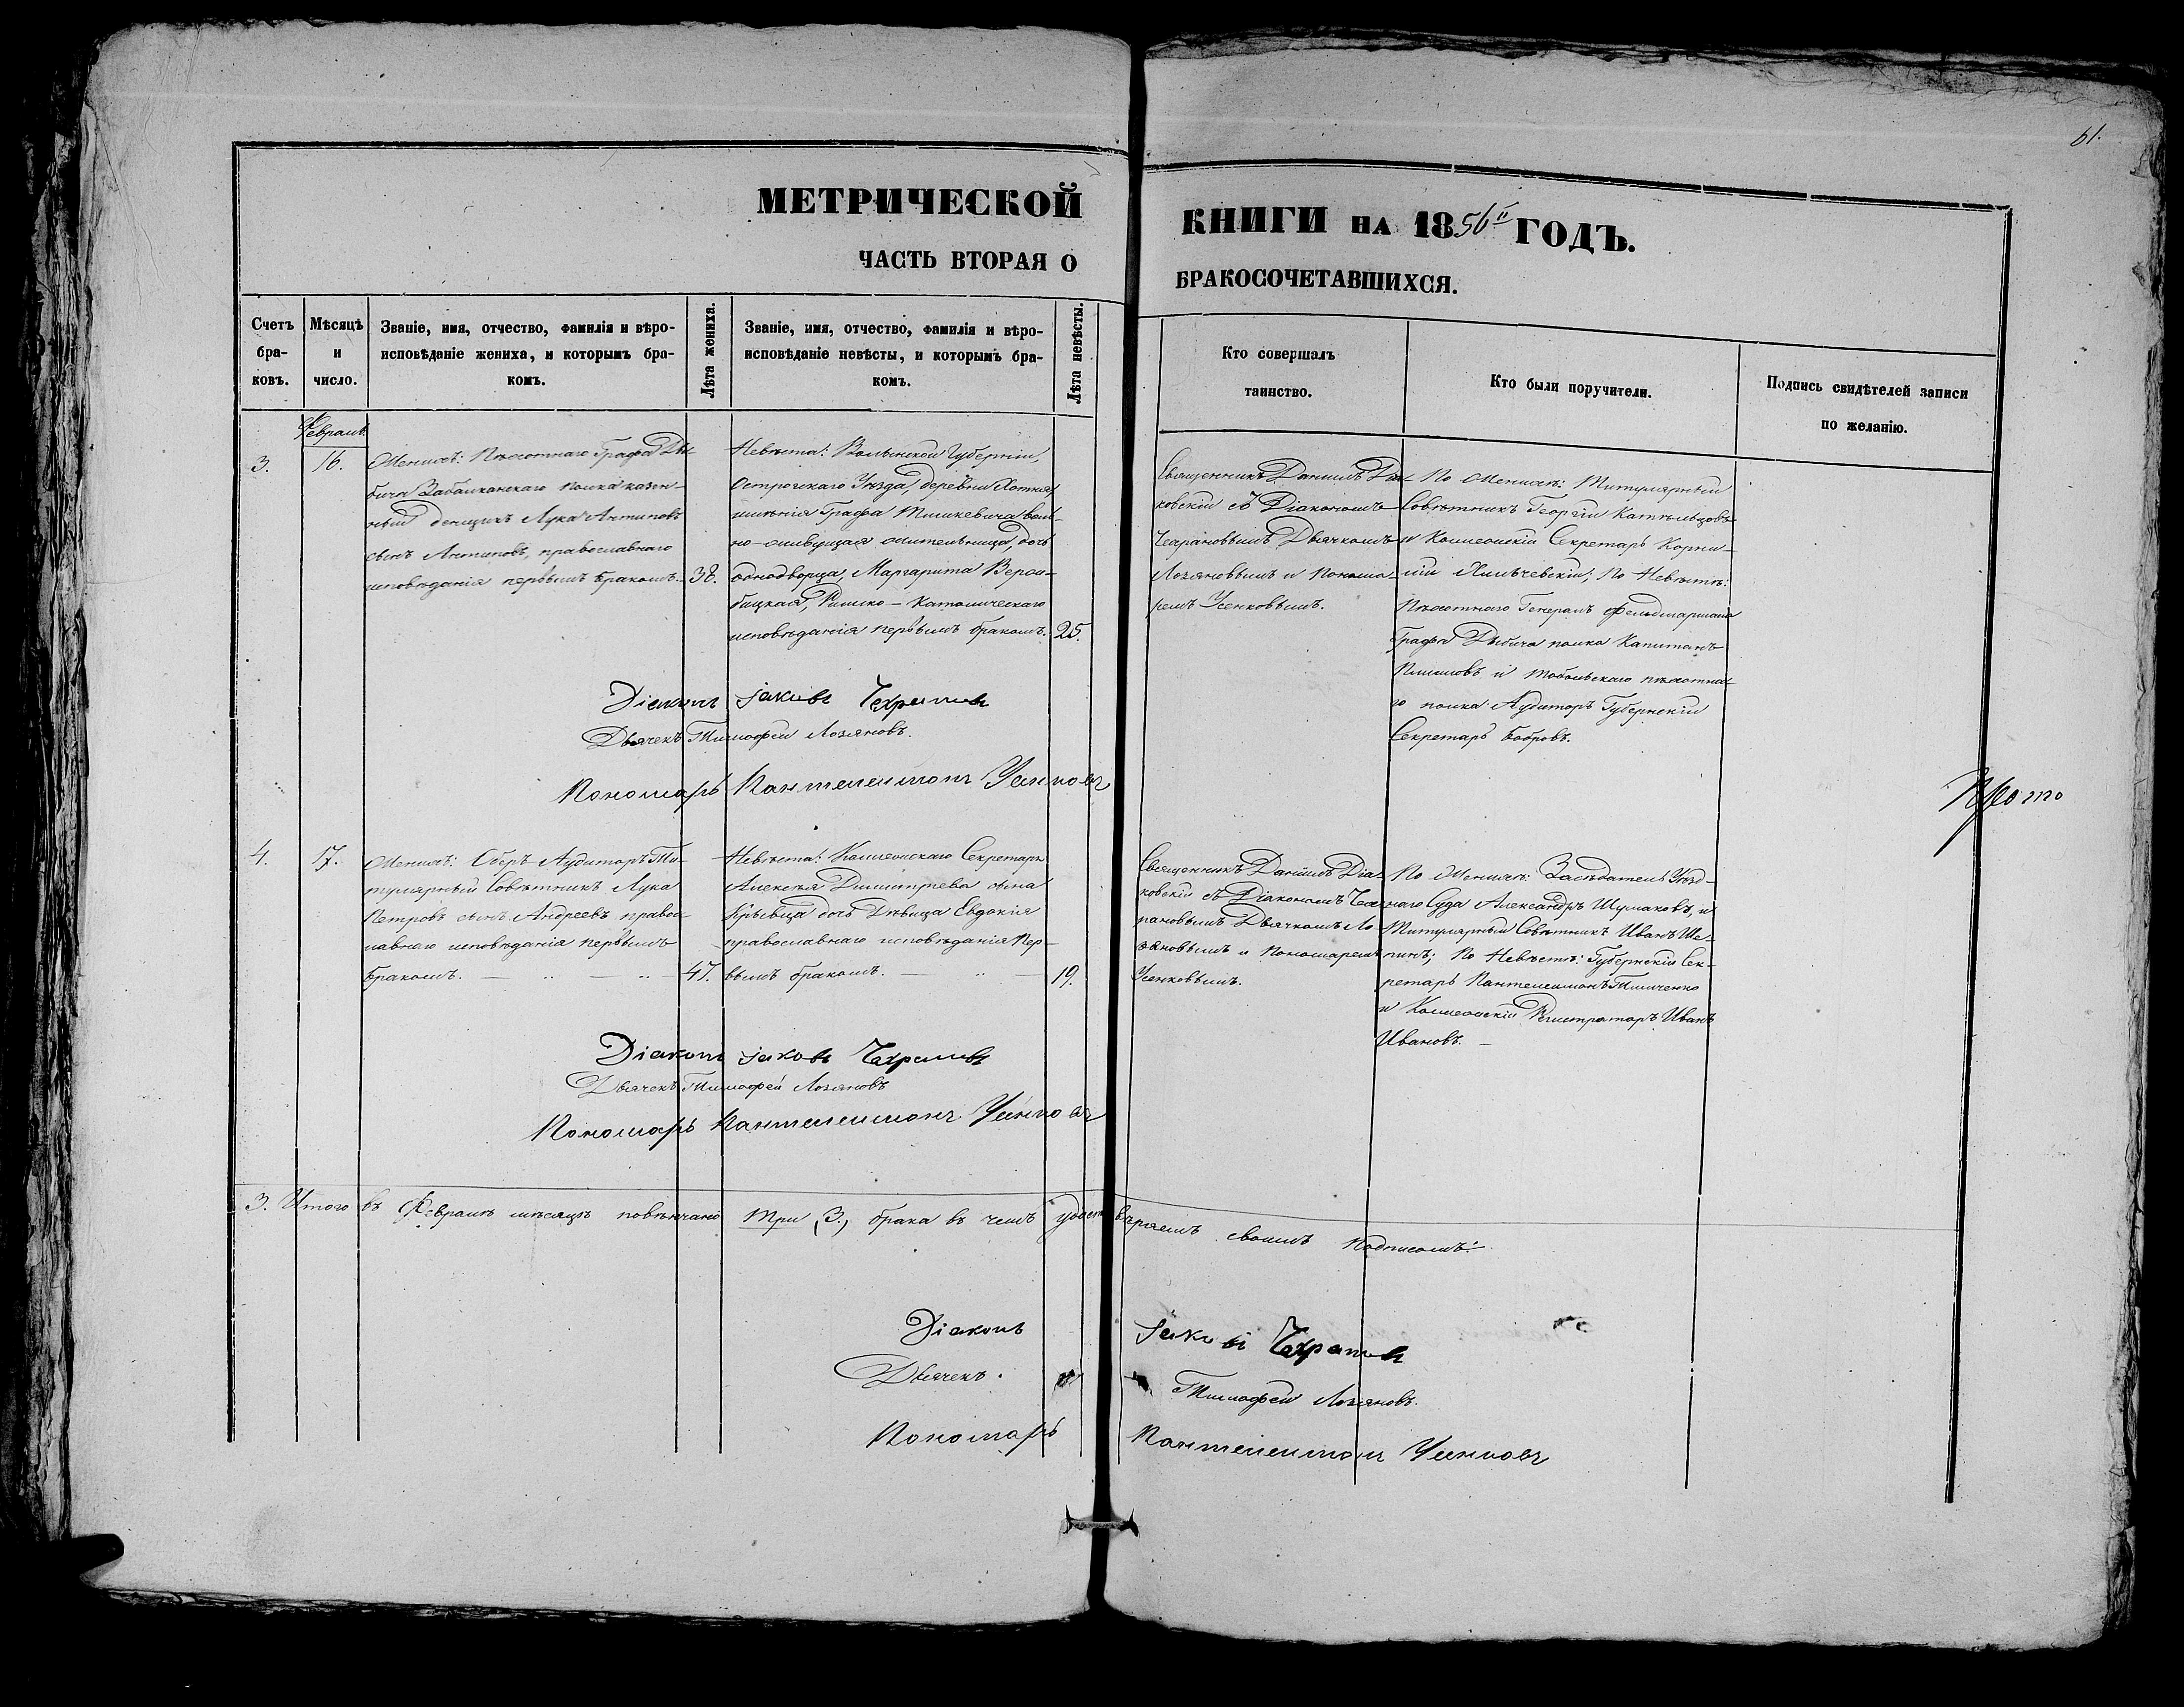 61.
МЕТРИЧЕСКОЙ
КНИГИ НА 1856й ГОДЪ.
ЧАСТЬ ВТОРАЯ О
БРАКОСОЧЕТАВШИХСЯ.
Счетъ
бра-
ковъ.
Мѣсяцъ
и
число.
Званіе, имя, отчество, фамилія и вѣро-
исповѣданіе жениха, и которымъ бра-
комъ.
Лѣта жениха.
Званіе, имя, отчество, фамилія и вѣро-
исповѣданіе невѣсты, и которымъ бра-
комъ.
Лѣта невѣсты.
Кто совершалъ
таинство.
Кто были поручители.
Подпись свидѣтелей записи
по желанію.
Февраль
3.
16.
Женихъ: Пѣхотнаго Графа Ди-
бича Забалканскаго полка казен-
ный денщикъ Лука Антиповъ
сынъ Антиповъ, православнаго
исповѣданія первымъ бракомъ.
38.
Невѣста: Волынской Губерніи,
Острогскаго Уѣзда, деревни
имѣнія Графа Тишкевича воль-
но-живущая жительница, дочь
однодворца, Маргарита
Римско-Католическаго
исповѣданія первымъ бракомъ.
25.
Священникъ Даніилъ Дья-
ковскій съ Діакономъ
Чехрановымъ Дьячкомъ
Лозановымъ и Понома-
ремъ Усенковымъ.
По Женихѣ: Титулярный
Совѣтникъ Георгій
и Коллежскій Секретарь Корни-
лій По Невѣстѣ:
Пѣхотнаго Генералъ Фельдмаршала
Графа Дибича полка Капитанъ
и Тобольскаго пѣхотна-
го полка Аудиторъ Губернскій
Секретарь Бобровъ.
Діаконъ Іаковъ Чехрановъ
Дьячекъ Тимофей Лозановъ.
Пономарь Пантелеимонъ Усенковъ
4.
17.
Женихъ: Оберъ-Аудиторъ Ти-
тулярный Совѣтникъ Лука
Петровъ сынъ Андреевъ правос-
лавнаго исповѣданія первымъ
бракомъ.
47.
Невѣста: Коллежскаго Секретаря
Алексѣя Димитріева сына
дочь Дѣвица Евдокія
православнаго исповѣданія пер-
вымъ бракомъ.
19.
Священникъ Даніилъ Дья-
ковскій съ Діакономъ Чех-
рановымъ Дьячкомъ Ло-
зановымъ и Пономаремъ
Усенковымъ.
По Женихѣ: Засѣдатель Уѣзд-
наго Суда Александръ Шумаковъ, и
Титулярный Совѣтникъ Иванъ Ше-
пинъ; По Невѣстѣ: Губернскій Сек-
ретарь Пантелеимонъ Тимченко
и Коллежскій Регистраторъ Иванъ
Ивановъ.
Діаконъ Іаковъ Чехрановъ
Дьячекъ Тимофей Лозановъ
Пономарь Пантелеимонъ Усенковъ
3. Итого въ Февралѣ мѣсяцѣ повѣнчано три (3.) брака въ чемъ удостовѣряемъ своимъ подписомъ:
Діаконъ Іаковъ Чехрановъ
Дьячекъ Тимофей Лозановъ.
Пономарь Пантелеимонъ Усенковъ